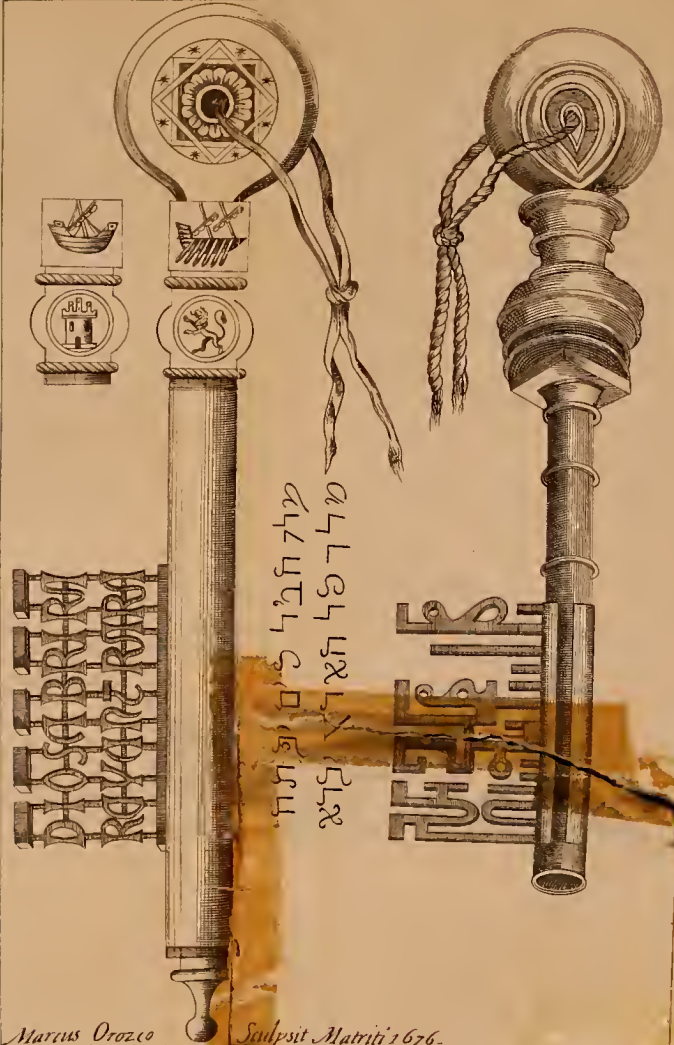 DIOS ABRIRA
REY ENTRARA
מלך המלכים יפתח
מלך כל הארץ יבא
Marcus Orozco Sculpsit Matriti 1676.